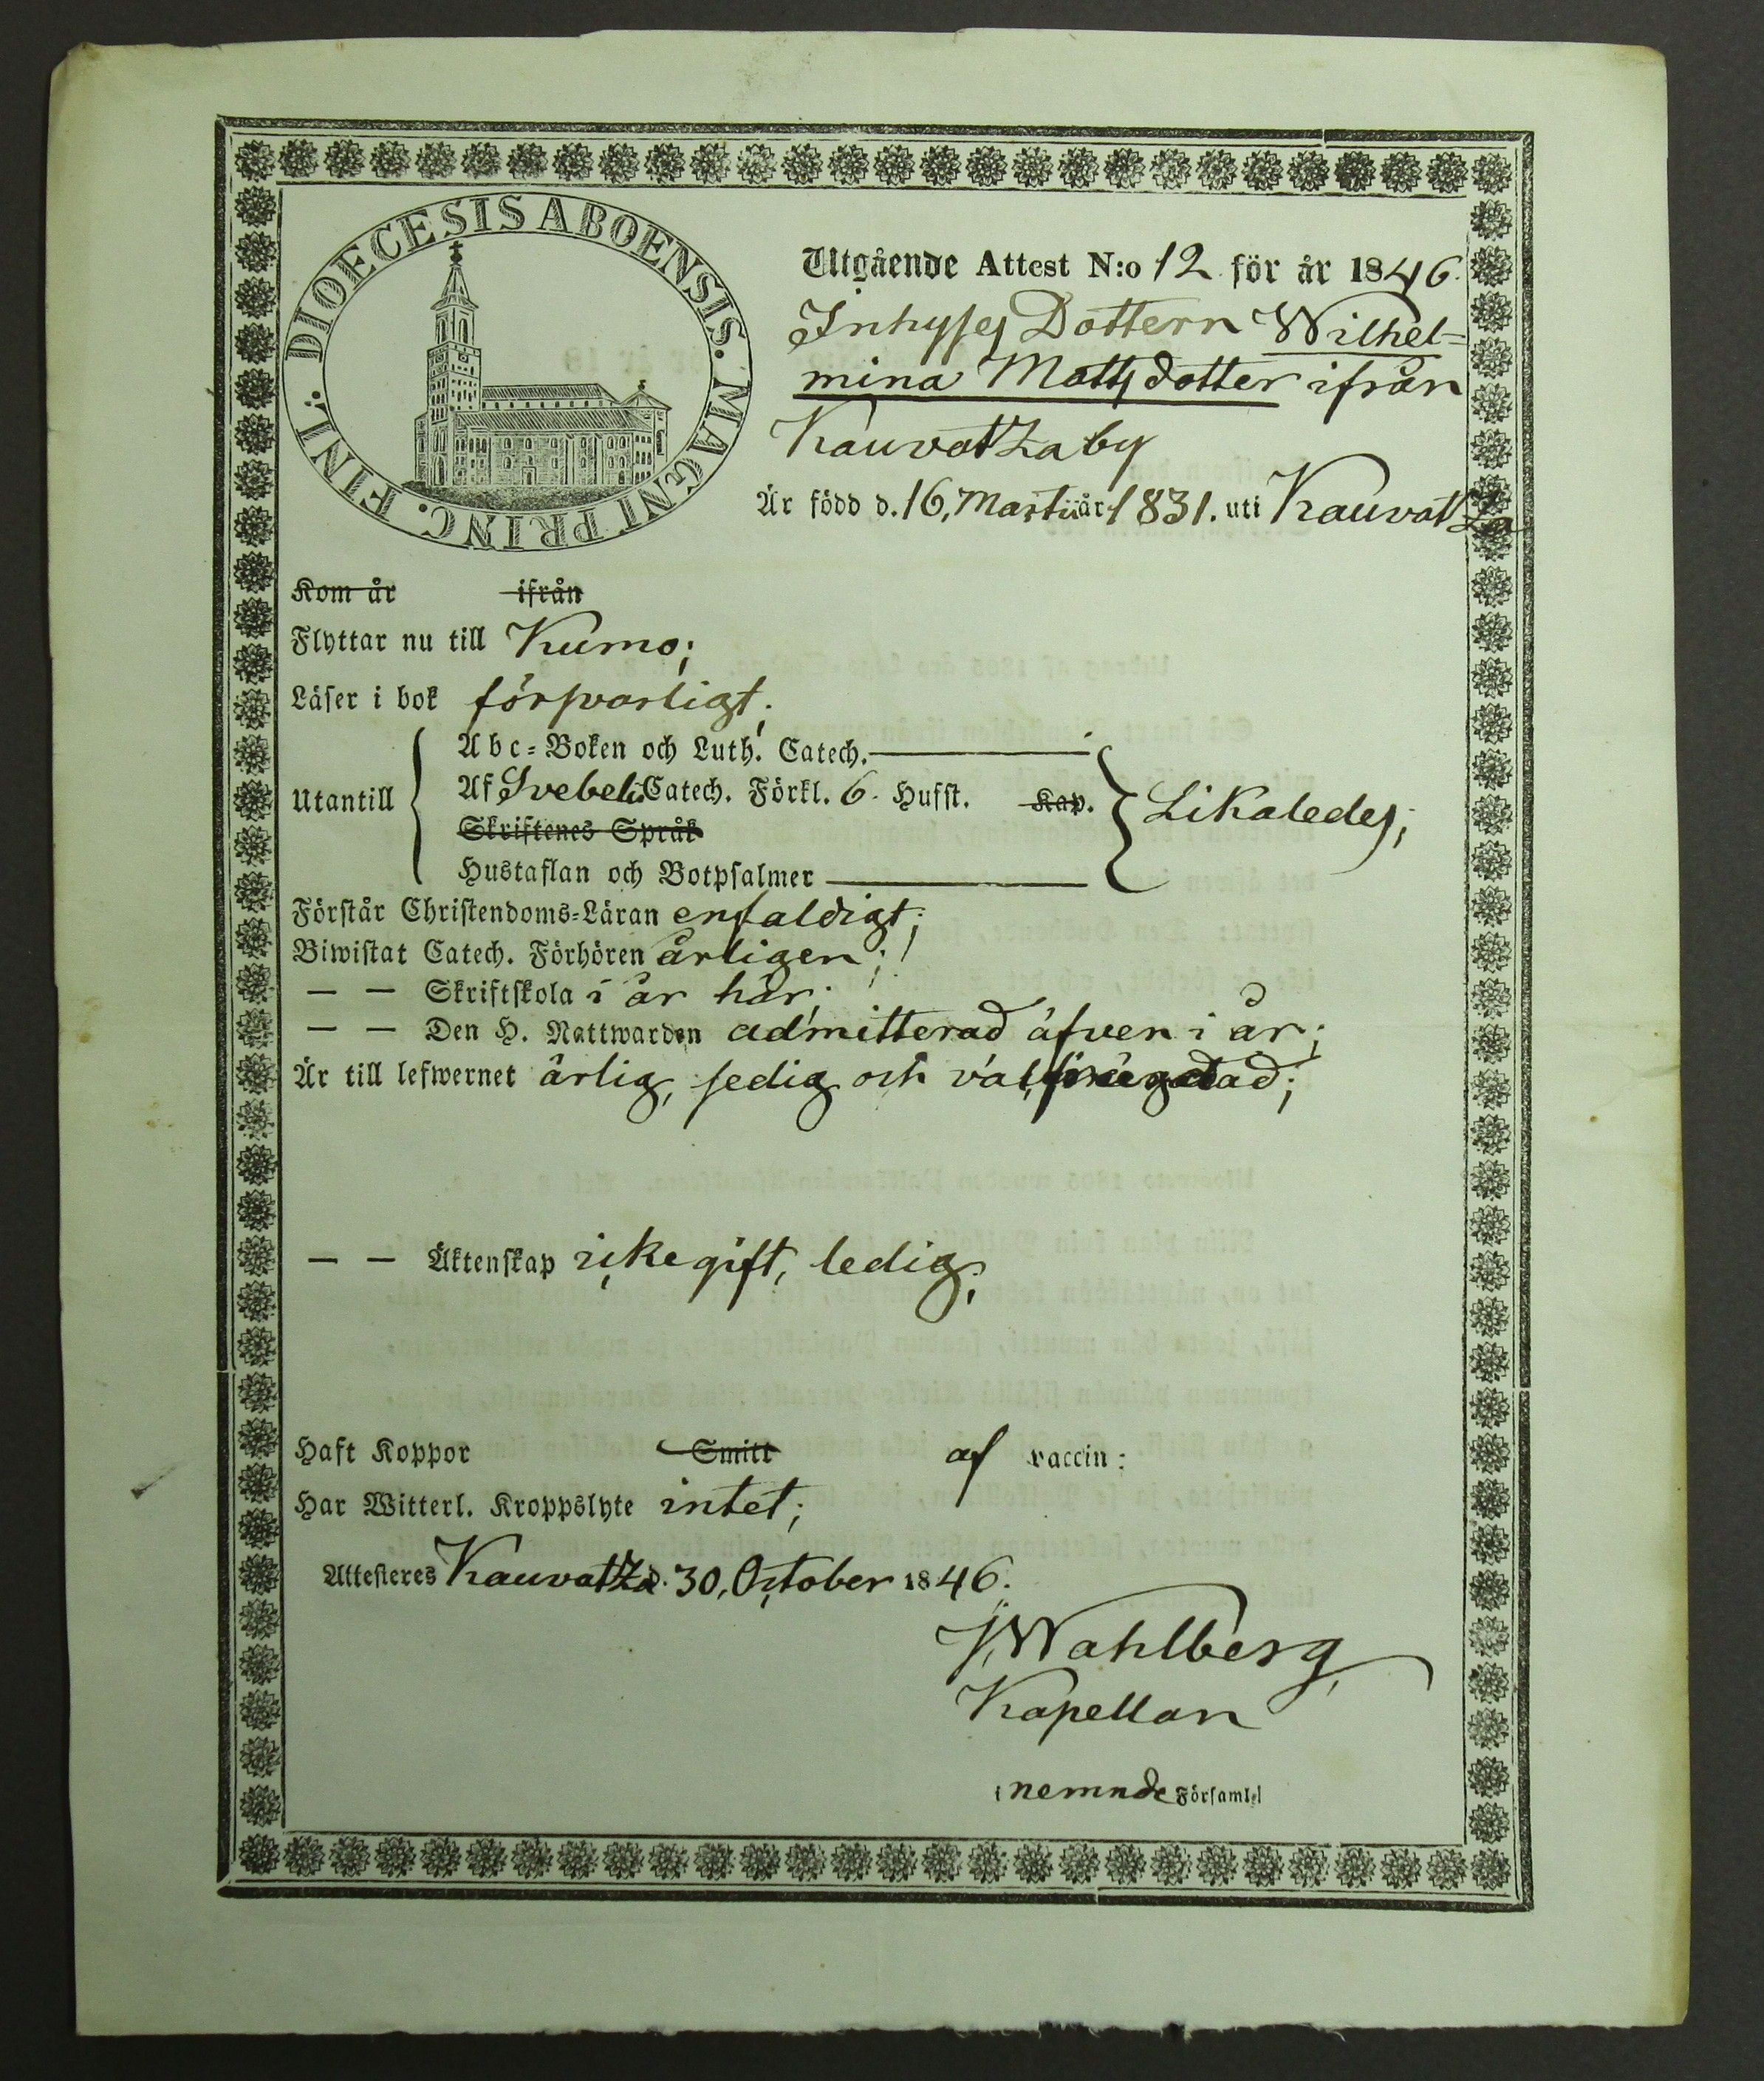 DIOECESIS ABOENSIS. MAGNI PRINC. FINL.
Utgående Attest N:o 12 för år 1846.
Inhyses Dottern Wilhel=
mina Matts dotter ifrån
Kauvatza by
Är född d. 16, Martii år 1831. uti Kauvatza
Kom år ifrån
Flyttar nu till Kumo;
Läser i bok försvarligt;
Abc=Boken och Luth. Catech.
Utantill Af Svebelii Catech. Förkl. 6. Hufst. Kap. Likaledes;
Skriftenes Språk
Hustaflan och Botpsalmer
Förstår Christendoms=Läran enfaldigt;
Biwistat Catech. Förhören årligen;
— — Skriftskola i år här;
— — Den H. Nattwarden admitterad äfven i år;
Är till lefwernet ärlig, sedig och väl frägdad;
— — Äktenskap icke gift, ledig;
Haft Koppor Smitt af vaccin:
Har Witterl. Kroppslyte intet;
Attesteres Kauvatza d. 30, October 1846.
J. Wahlberg,
Kapellan
i nemnde Församl.